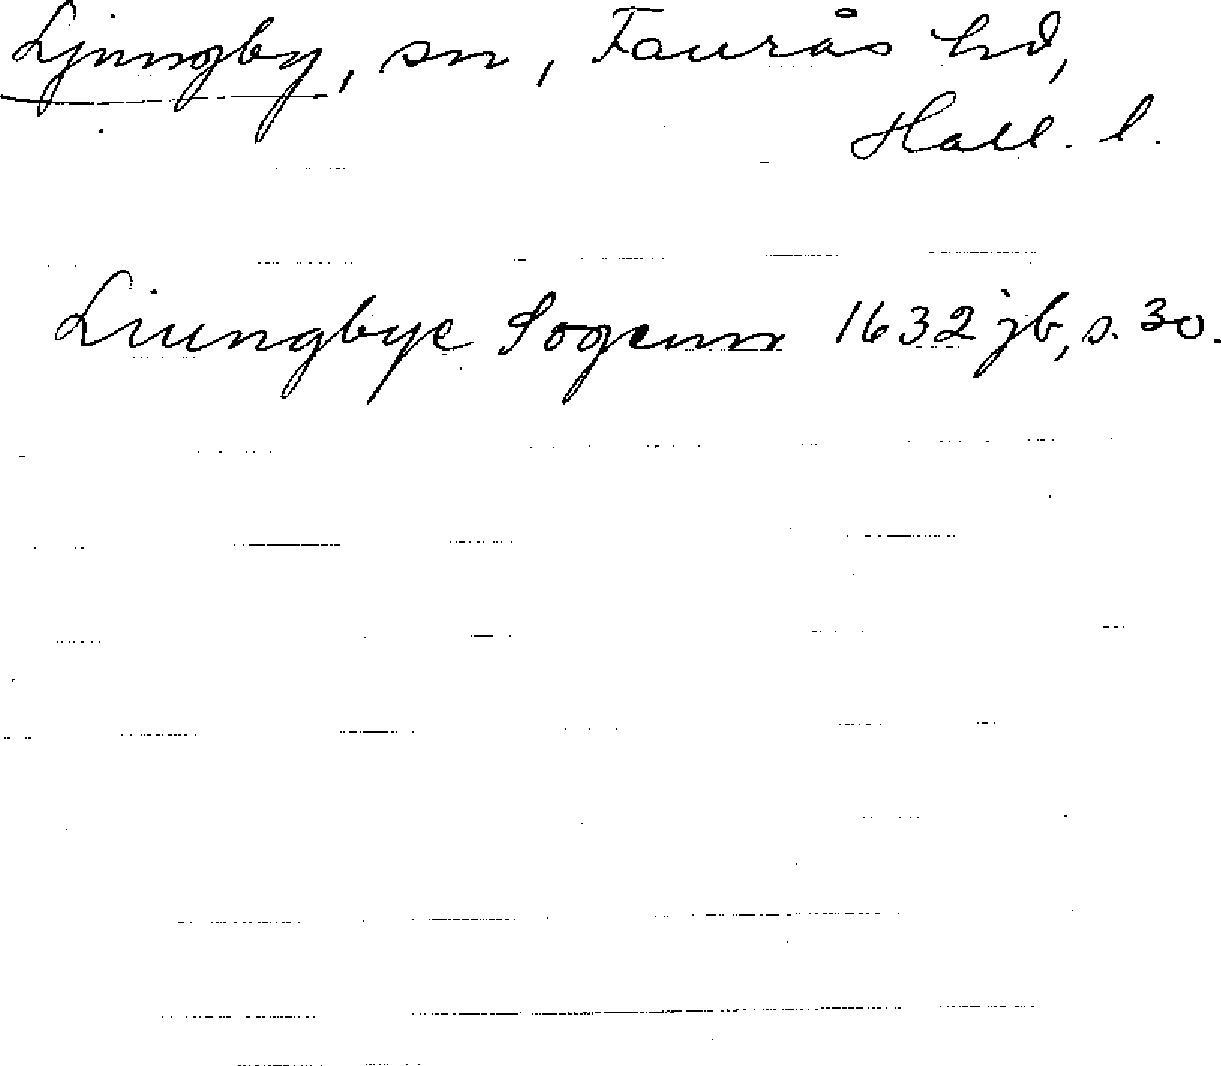 Ljungby, sn, Faurås hd,
Hall. l.
Liungbye Sogenn 1632 jb, s. 30.